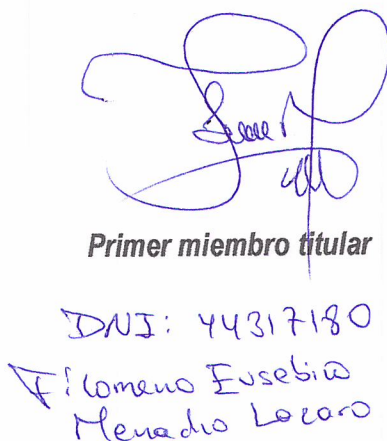 Primer miembro titular
DNI: 44317180
Filomeno Eusebio
Menacho Lazaro